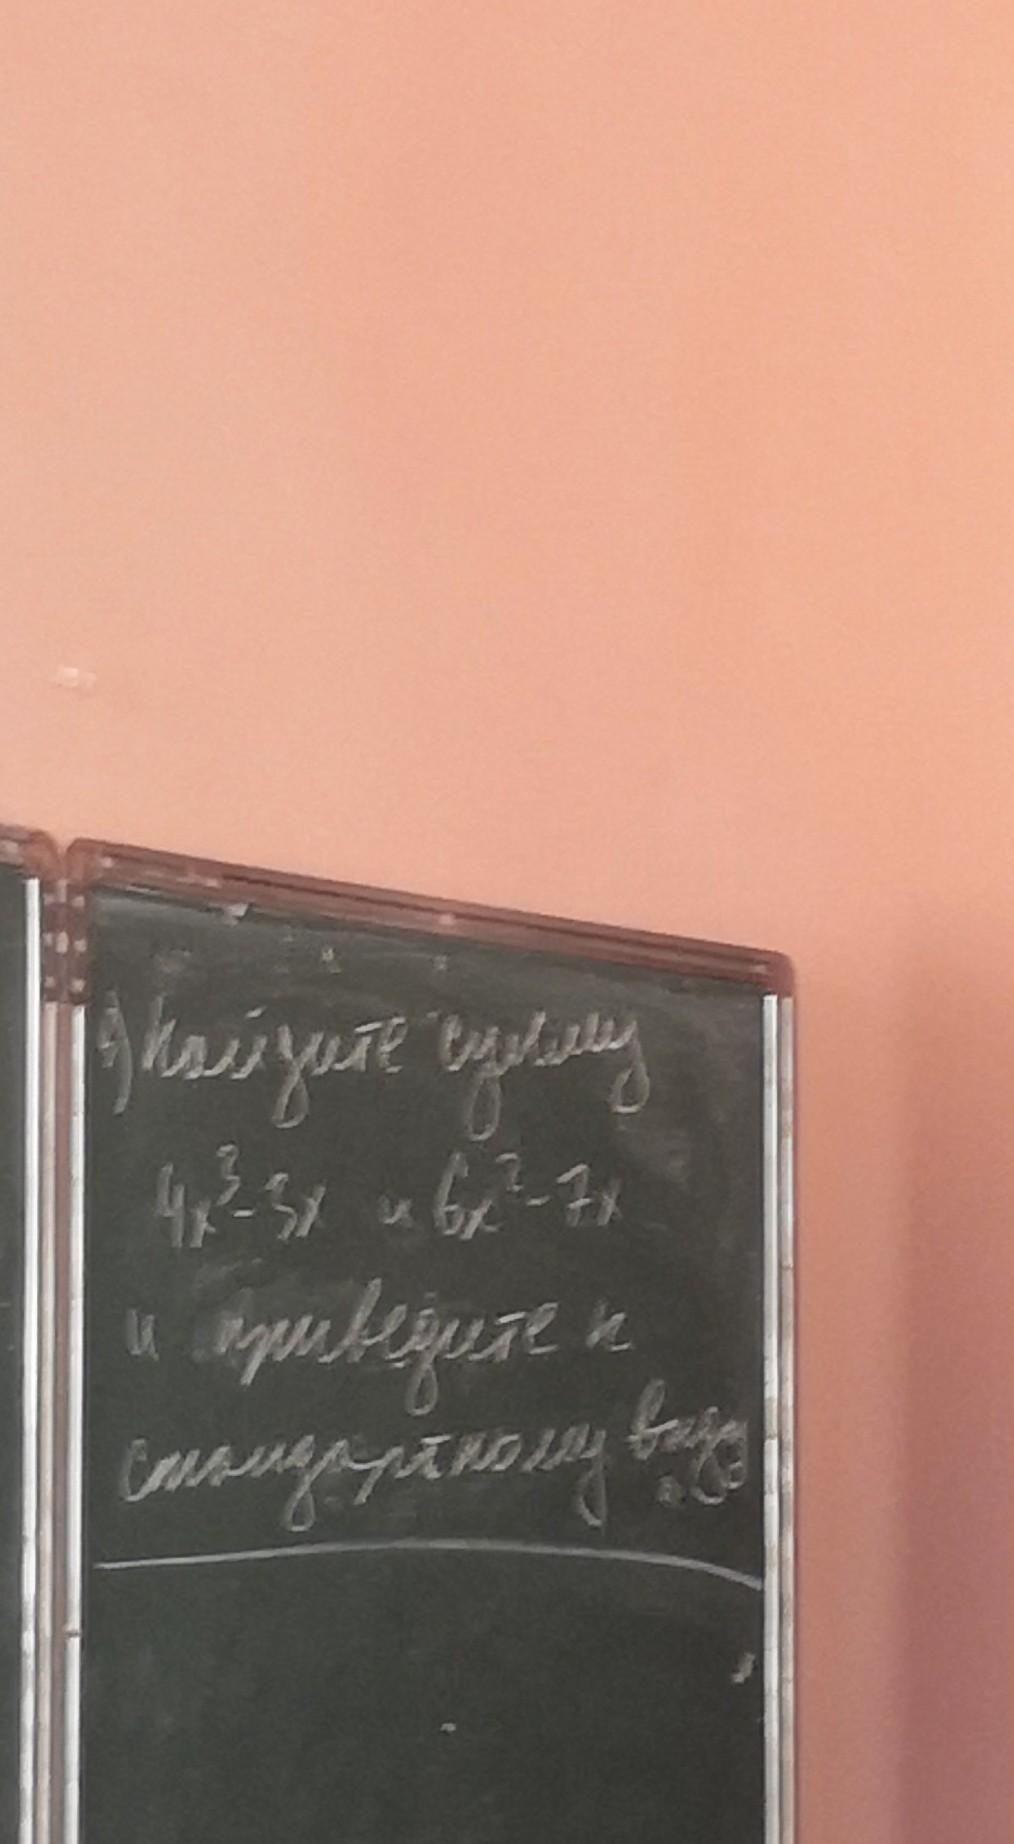 Найдите сумму
4x³-3x и 6x²-7x
и приведите к
стандартному виду